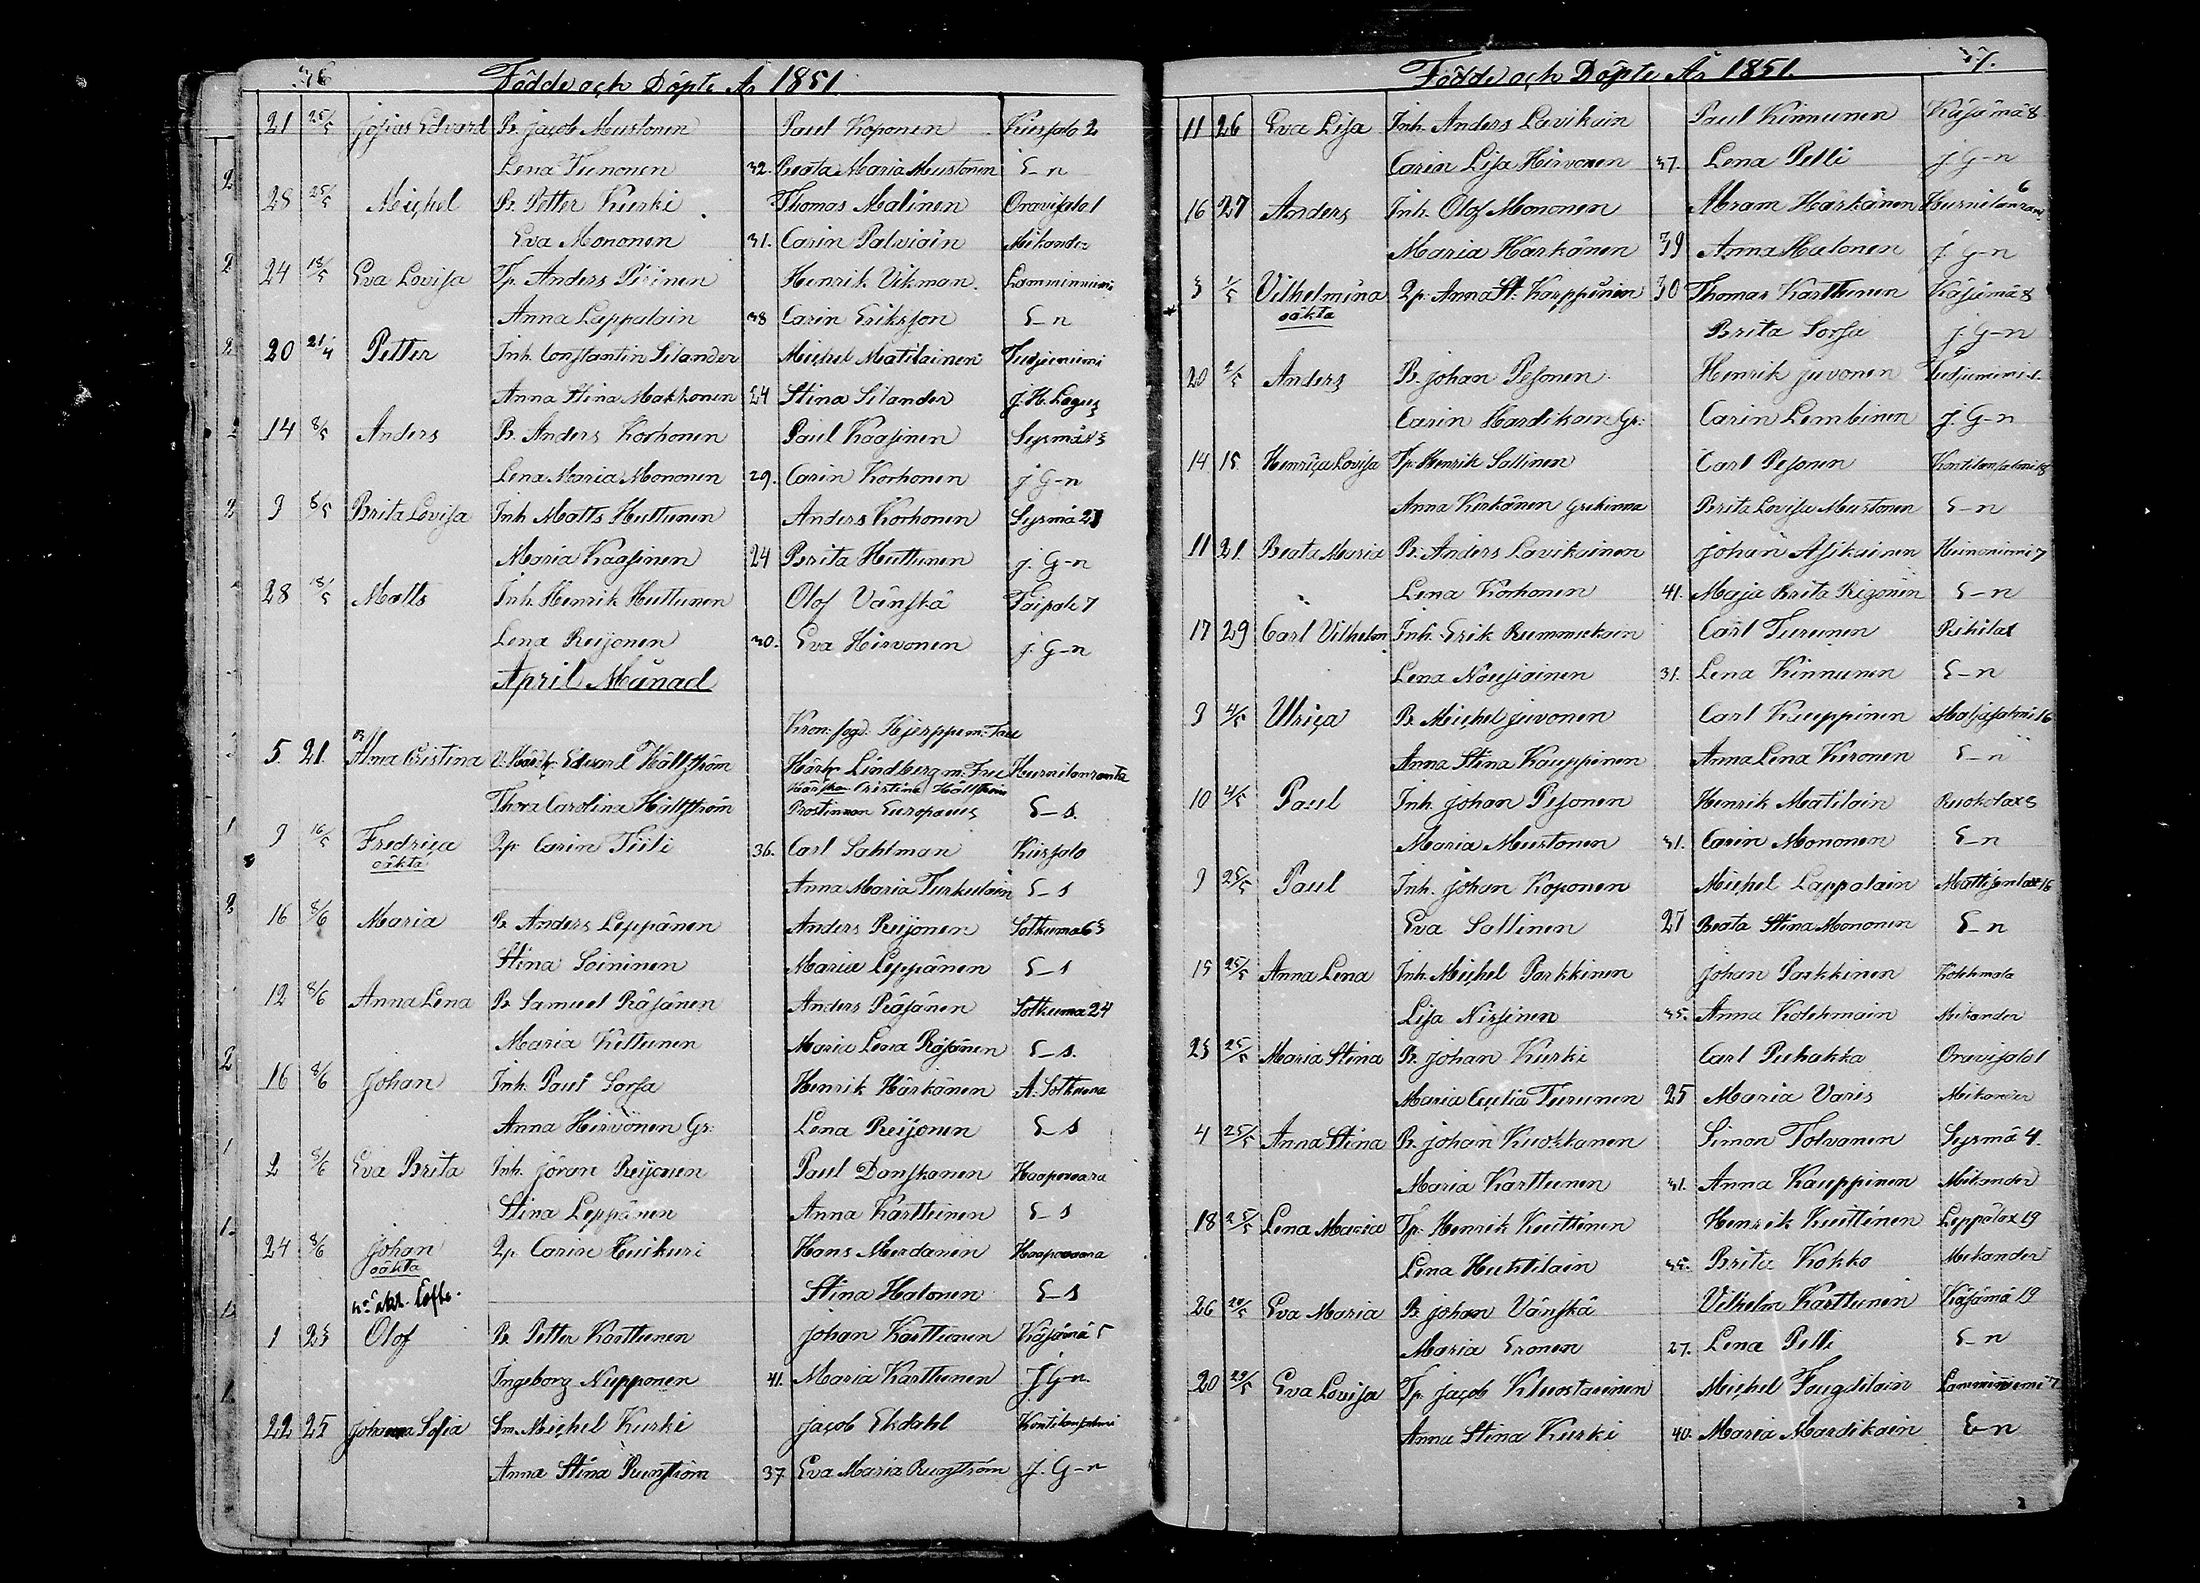 36
Födde och Döpte År 1851
21 25/5 Josias Edvard B. Jacob Mustonen Paul Koponen Kiessalo 2
Lena Tunonen 32. Beata Maria Mustonen E-n
28 25/5 Michel B. Petter Kurki Thomas Malinen Oravisalo 1
Eva Mononen 31. Carin Palviain Mikander
24 18/5 Eva Lovisa Tp. Anders Piirinen Henrik Vikman Lamminniemi
Anna Lappalain 38 Carin Eriksson E-n
20 21/4 Petter Inh. Constantin Silander Michel Matilainen
Anna Stina Makkonen 24 Stina Silander J. H. Lagus
14 8/5 Anders B. Anders Korhonen Paul Kaasinen Sysmä 13
Lena Maria Mononen 29. Carin Korhonen J G-n
9 8/5 Brita Lovisa Inh Matts Huttunen Anders Korhonen Sysmä 21
Maria Kaasinen 24 Brita Huttunen J. G-n
28 18/5 Matts Inh. Henrik Huttunen Olof Vänskä Taipale 7
Lena Reijonen 30. Eva Hirvonen J. G-n
April Månad
Kron. fogd. Hjerppe m. Fru
5. 21. Alma Cristina V. Edvard Hällström Lindberg m. Fru Hurnilanranta
Cristina Hällström
Thora Carolina Hällström Prostinnan Europaeus E-s.
9 16/5 Fredrica Qp Carin Tiili 36. Carl Sahlman Kiessalo
oäkta
Anna Maria Turkulain E-s
16 8/6 Maria B. Anders Leppänen Anders Reijonen Sotkuma 63
Stina Soininen Maria Leppänen E-s
12 8/6 Anna Lena B. Samuel Räsänen Anders Räsänen Sotkuma 24
Maria Kettunen Maria Lena Räsänen E-s.
16 8/6 Johan Inh. Paul Sorsa Henrik Härkänen A. Sotkuma
Anna Hirvonen Gr: Lena Reijonen E-s
2 8/6 Eva Brita Inh. Jöran Reijonen Paul Danskanen Haapovaara
Stina Leppänen Anna Karttunen E-s
24 8/6 Johan Qp. Carin Huikuri Hans Muidanin Haapovaara
oäkta
Stina Halonen E-s
1 23 Olof B. Petter Karttunen Johan Karttunen Käsämä 5
Ingeborg Nupponen 41. Maria Karttunen J. G-n.
22 25 Johanna Sofia Sm. Michel Kurki Jacob Ekdahl Kontilansalmi
Anna Stina Runström 37 Eva Maria Runström J. G-n
37.
Födde och Döpte År 1851.
11 26 Eva Lisa Inh. Anders Lavikain Paul Kinnunen Käsämä 8
Carin Lisa Hirvonen 37. Lena Pelli J. G-n
16 27 Anders Inh. Olof Mononen Abram Härkänen Hurnilanran 6
Maria Härkänen 39 Anna Halonen J G-n
3 1/5 Vilhelmina Qp. Anna St. Karppinen 30 Thomas Karttunen Käsämä 8
oäkta
Brita Sorsa J. G-n
20 2/5 Anders B. Johan Pesonen Henrik Juvonen
Carin Hardikain Gr: Carin Lembinen J. G-n
14 15 Henrica Lovisa Tp. Henrik Sallinen Carl Pesonen Kontilansalmi 18
Anna Kerkänen Grekinna Brita Lovisa Mustonen E-n
11 21. Beata Maria B. Anders Lavikainen Johan Asikainen Heinoniemi 7
Lena Korhonen 41. Maja Brita Rizonin E-n
17 29 Carl Vilhelm Inh. Erik Rummukain Carl Turunen Rihilax
Lena Nousiainen 31. Lena Kinnunen E-n
9 4/5 Ulrica B. Michel Juvonen Carl Kauppinen 16
Anna Stina Kauppinen Anna Lena Kironen E-n
10 4/5 Paul Inh. Johan Pesonen Henrik Matilain Ruokolax 3
Maria Mustonen 31. Carin Mononen E-n
9 25/5 Paul Inh. Johan Koponen Michel Lappalain Mattisenlax 16
Eva Sallinen 27 Beata Stina Mononen E-n
15 25/5 Anna Lena Inh. Michel Parkkinen Johan Parkkinen Kokkmala
Lisa Nissinen 35. Anna Kolehmain Mikander
23 25/5 Maria Stina B. Johan Kurki Carl Puhakka Oravisalo 1
Maria Cecilia Turunen 25 Maria Varis Mikander
4 25/5 Anna Stina B. Johan Kuokkanen Simon Tolvanen Sysmä 4.
Maria Karttunen 31. Anna Kauppinen Mikander
18 25/5 Lena Maria Tp. Henrik Kuittinen Henrik Kuittinen Leppälax 19
Lena Huhtilain 35. Brita Kokko Mikander
26 29/5 Eva Maria B. Johan Vänskä Vilhelm Karttunen Käsämä 19
Maria Eronen 27. Lena Pelli E-n
20 29/5 Eva Lovisa Tp. Jacob Kluostarinen Michel Fougdilain Lamminniemi 7
Anna Stina Kurki 40. Maria Mardikain E-n